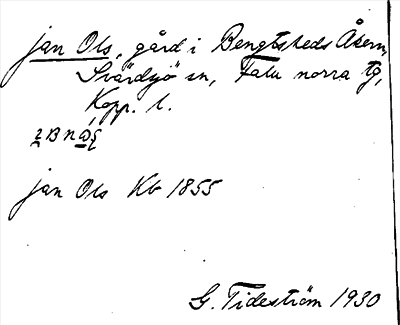 jan Ols, gård i Bengtsheds Åkern,
Svärdsjö sn, Falu norra tg,
Kopp. l.
jan Ols Kb 1855
G. Tideström 1930